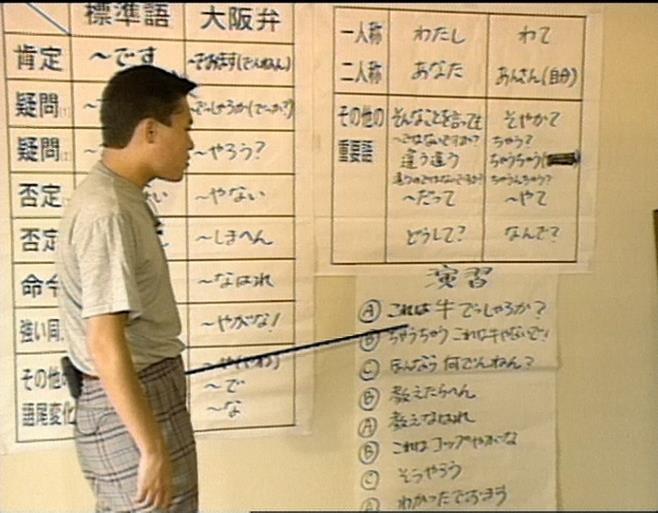 標準語 大阪弁
肯定 ～です ～でおます(でんねん)
疑問 ～でっしゃろか(でっか?)
疑問 ～やろう?
否定 ～やない
否定 ～しまへん
命令 ～なはれ
強い同 ～やがな!
その他の ～や(やわ)
語尾変化 ～で
～な
一人称 わたし わて
二人称 あなた あんさん(自分)
その他の そんなことを言っても そやかて
重要語 ～ではないですか? ちゃう?
違う違う ちゃうちゃう
違うのではないでするか? ちゃうんちゃう?
～だって ～やて
どうして? なんで?
演習
Ⓐ これは 牛でっしゃろか?
Ⓑ ちゃうちゃう これは牛やないで!
Ⓒ ほんなら 何でんねん?
Ⓑ 教えたらへん
Ⓐ 教えなはれ
Ⓑ これは コップやがな
Ⓒ そうやろう
Ⓐ わかったでおまう